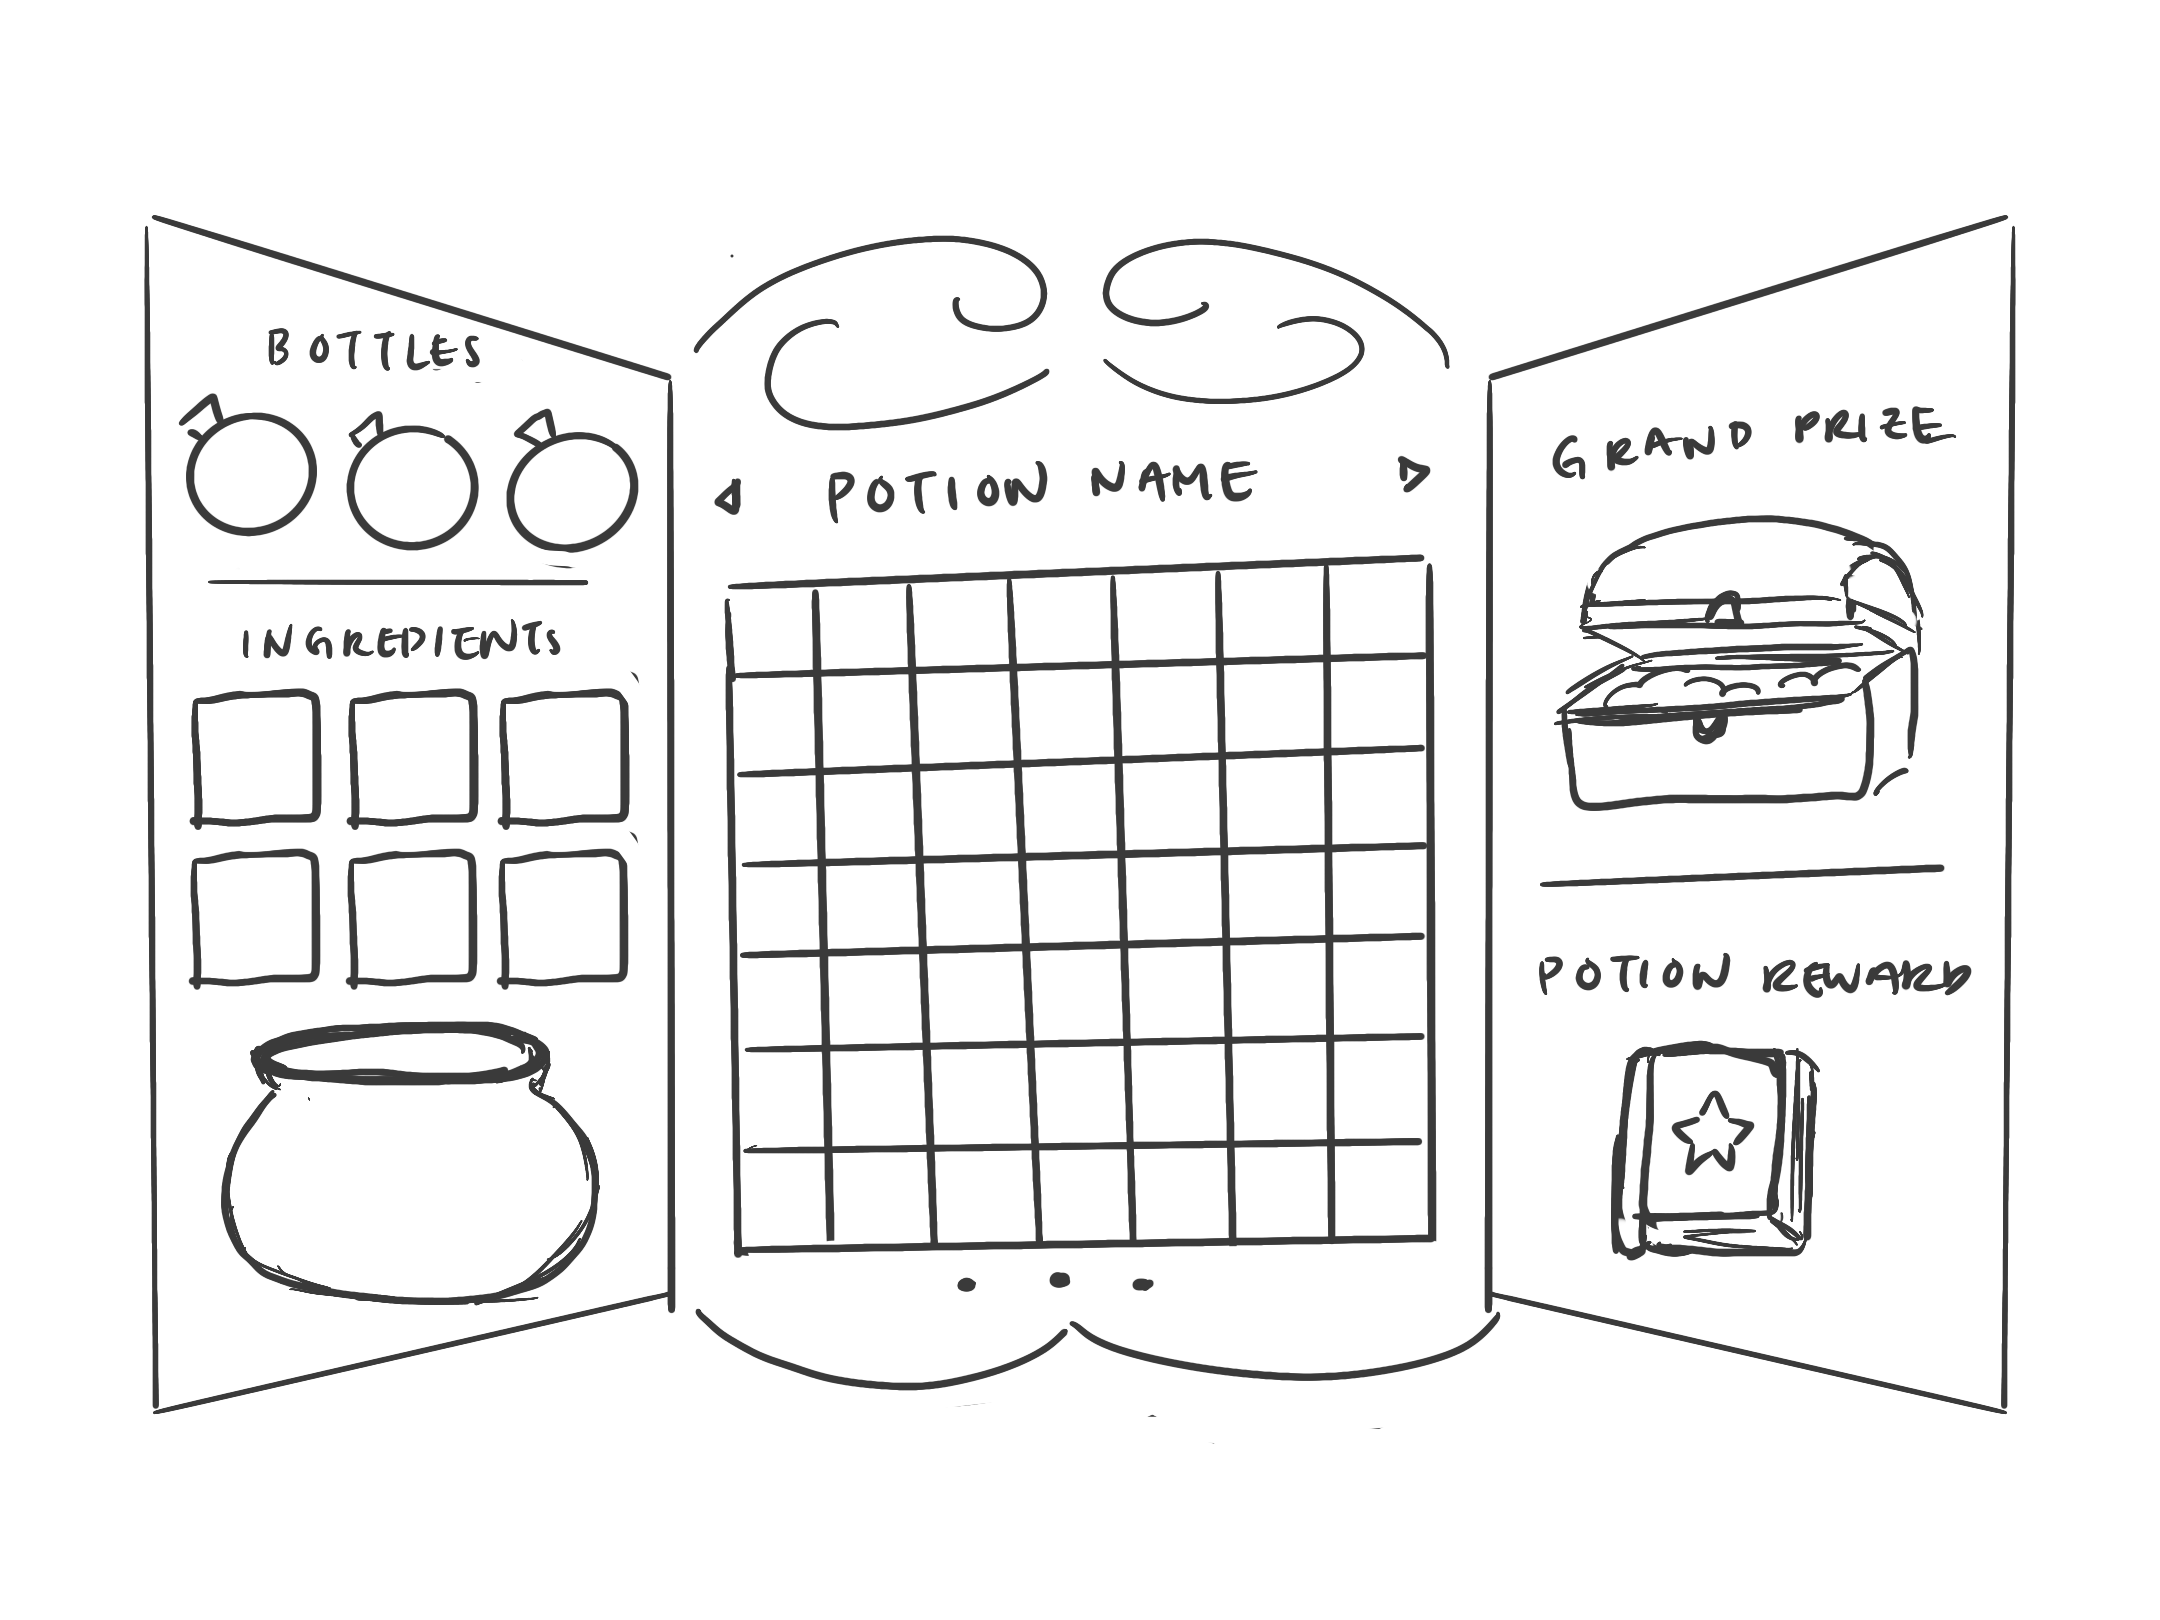 BOTTLES
INGREDIENTS
POTION NAME
GRAND PRIZE
POTION REWARD